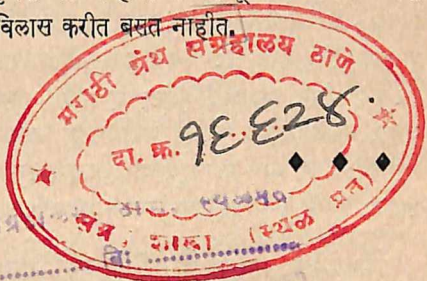 विलास करीत बसत नाहीत.
मराठी ग्रंथ संग्रहालय ठाणे
दा. क्र. १६६२४.
शाखा (स्थळ प्रत)
विः